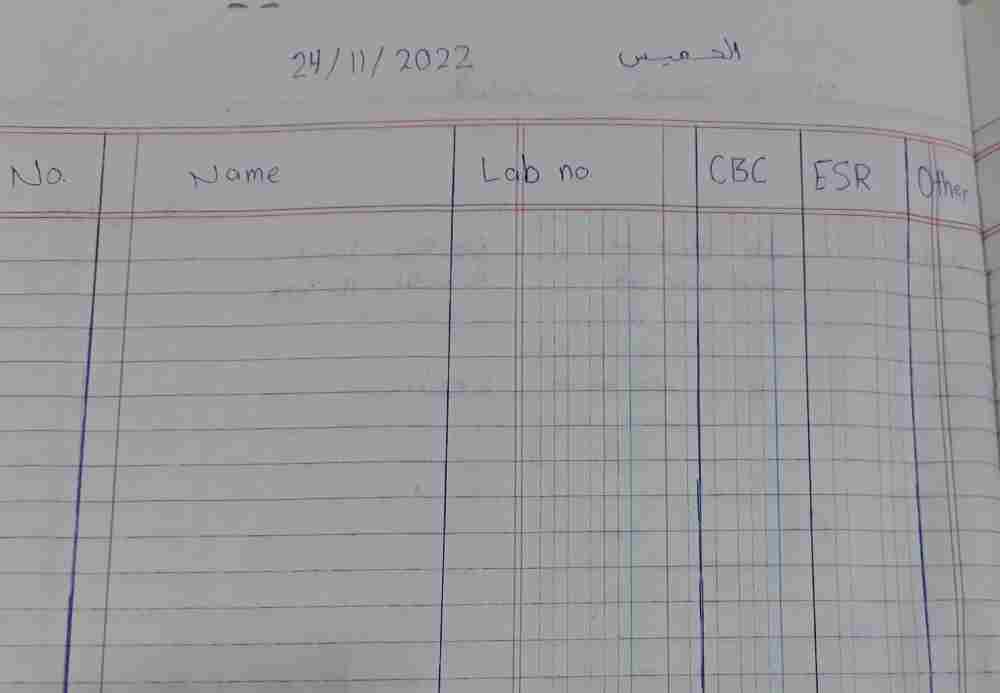 24/11/2022 الخميس
No. Name Lab no CBC ESR Other